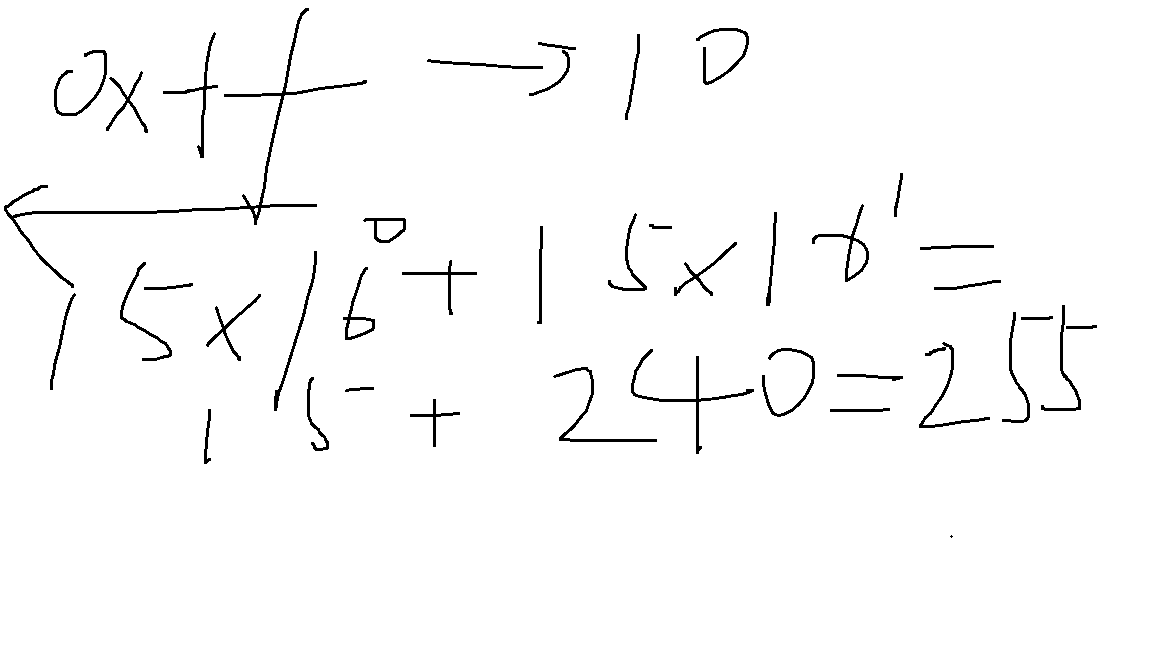 0xff → 10
15x16⁰ + 15x16¹ =
15 + 240 = 255